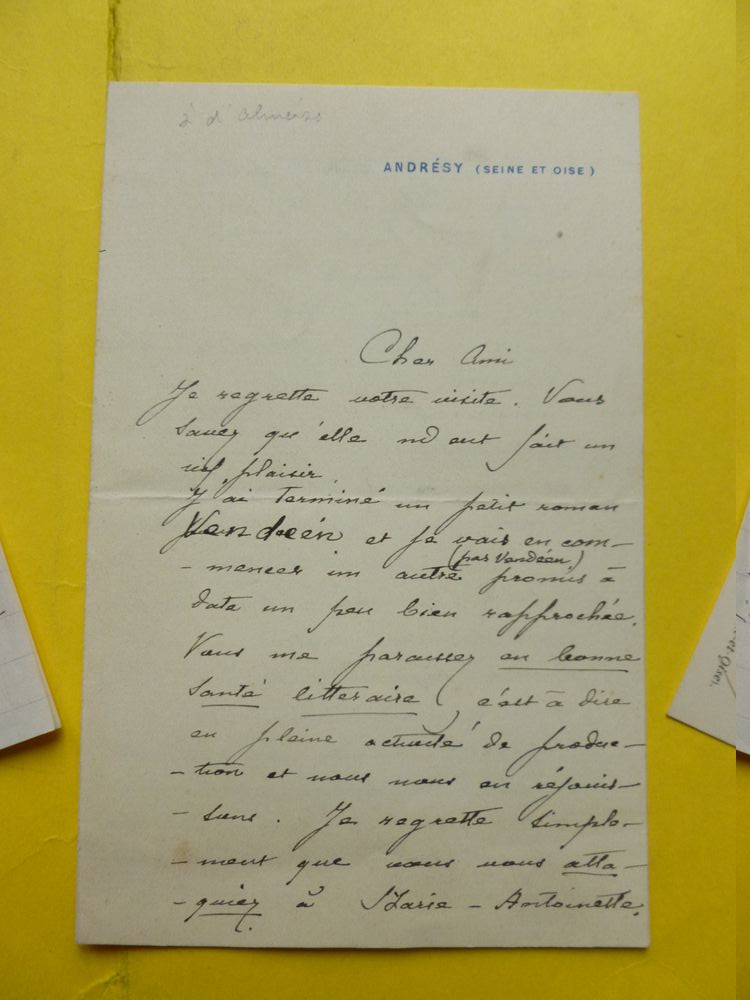 à d'Alméras
ANDRÉSY (SEINE ET OISE)
Cher Ami
Je regrette votre visite. Vous
savez qu'elle m'eut fait un
vif plaisir
J'ai terminé un petit roman
Vendéen et je vais en com-
(pas Vendéen)
- mencer un autre promis à
date un peu bien rapprochée.
Vous me paraissez en bonne
santé litteraire (c'est à dire
en pleine activité de produc-
- tion et nous nous en réjouis-
- sons. Je regrette simple-
- ment que vous vous atta-
- quiez à Marie-Antoinette.